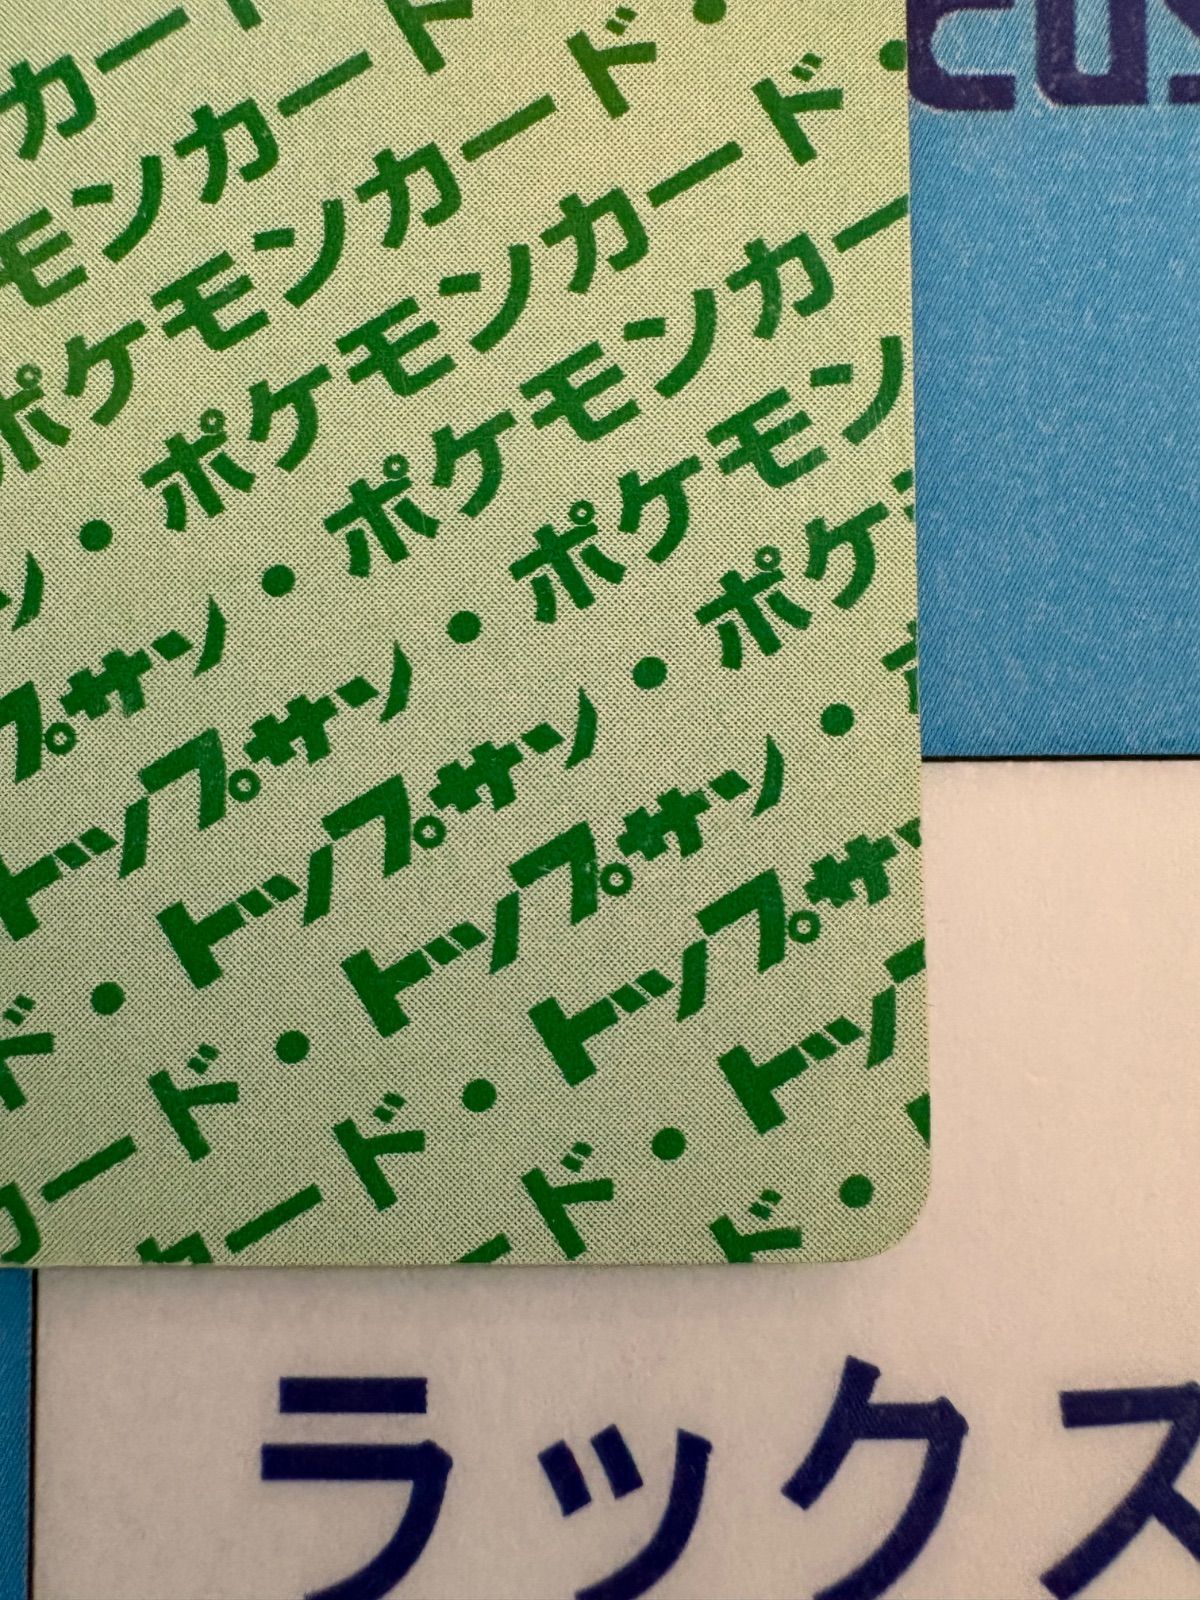 カード
モンカード
ポケモンカード・
・ポケモンカード・
プサン・ポケモンカー
トップサン・ポケモン
トップサン・ポケ
ド・トップサン・
カード・トップサン
カード・トップ
ード・ト
ド・
ラックス